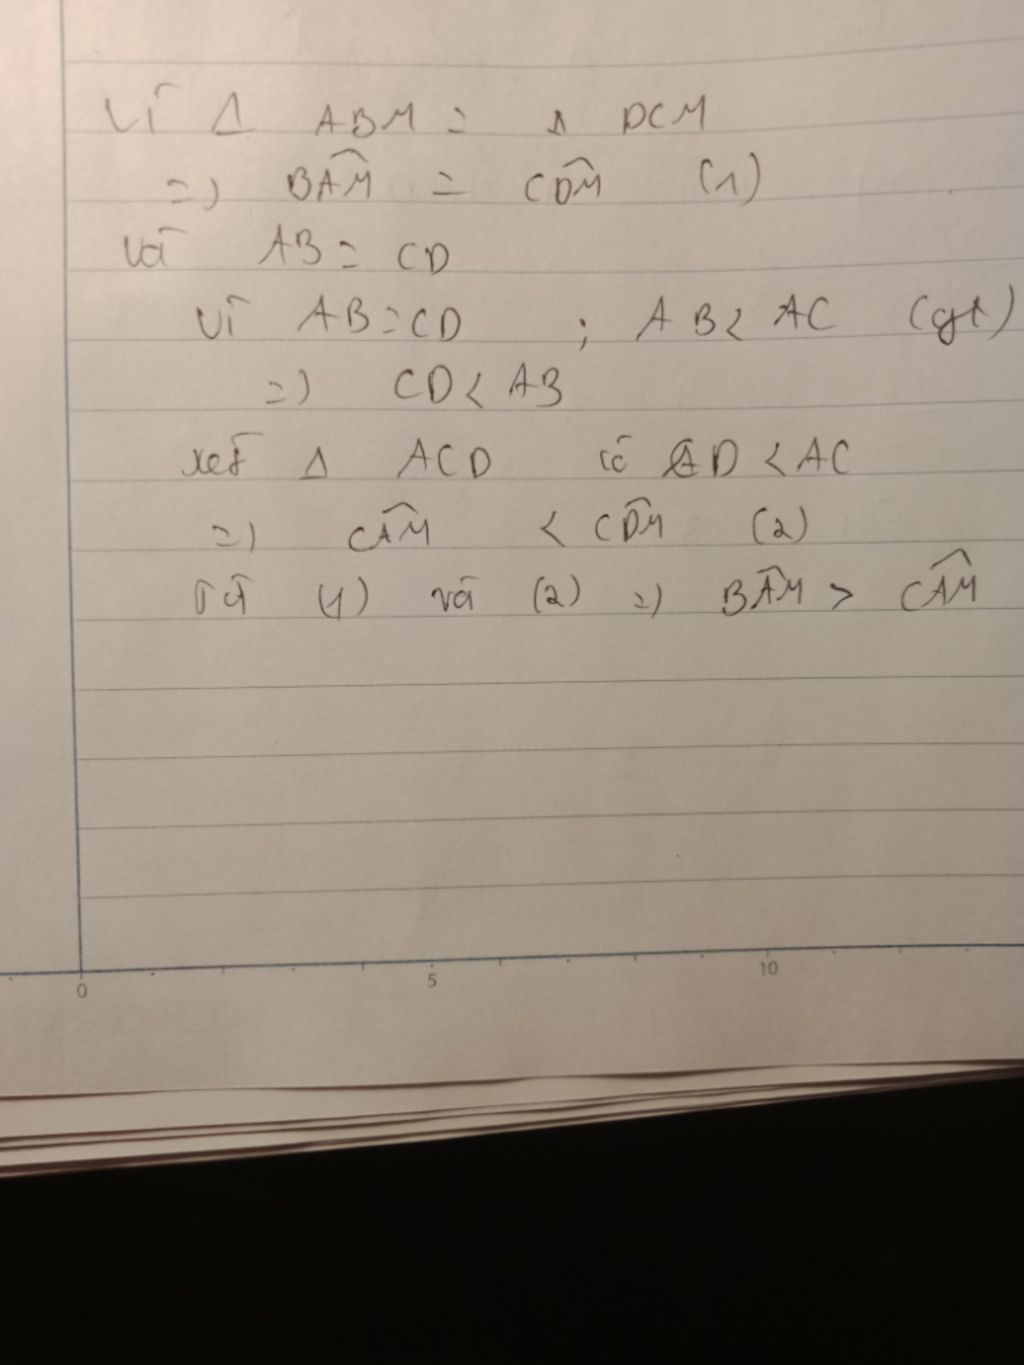 Vì Δ ABM = Δ DCM
=) BAM̂ = CDM̂ (1)
và AB = CD
Vì AB = CD ; AB < AC (gt)
=) CD < AB
xét Δ ACD có CD < AC
=) CAM̂ < CDM̂ (2)
Từ (1) và (2) =) BAM̂ > CAM̂
0 5 10